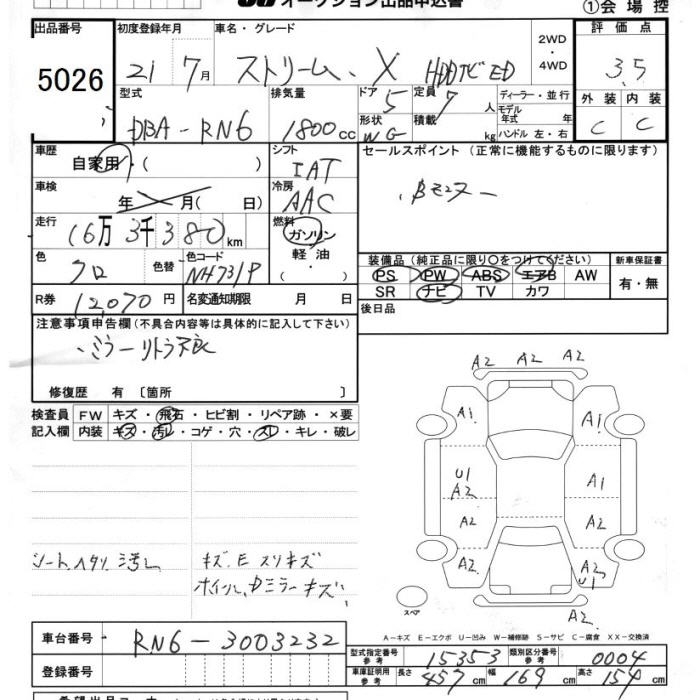 オークション出品申込書 ①会場控
出品番号 初度登録年月 車名・グレード 2WD・4WD 評価点
5026 21 7月 ストリーム X HDDナビED 3.5
型式 排気量 ドア 5 定員 7人 ディーラー・並行 外装 内装
DBA-RN6 1800cc 形状 WG 積載 kg モデル年式 年式 ハンドル 左・右 C C
車歴 自家用・( ) シフト IAT セールスポイント (正常に機能するものに限ります)
車検 年 月( 日) 冷房 AAC ・Bモニター
走行 16万3千380km 燃料 ガソリン 軽油・
色 クロ 色替 色コード NH731P 装備品(純正品に限り○をつけてください) 新車保証書
PS PW ABS エアB AW 有・無
SR ナビ TV カワ
R券 12,070円 名変通知期限 月 日 後日品
注意事項申告欄(不具合内容等は具体的に記入して下さい)
・ミラーリトラ不良
修復歴 有 〔箇所 〕
検査員 FW キズ・飛石・ヒビ割・リペア跡・×要
記入欄 内装 キズ・汚レ・コゲ・穴・スレ・キレ・破レ
シートヘタリ汚レ キズ.E スリキズ
ホイル、Dミラーキズ
A2 A2 A2
A1 A1
U1 A2 A1
A2 A2
A2 A2 U1
A2
スペア
A-キズ E-エクボ U-凹み W-補修跡 S-サビ C-腐食 XX-交換済
車台番号 RN6-3003232
登録番号
型式指定番号 参考 15353 類別区分番号 参考 0004
車庫証明用 参考 長さ 457cm 幅 169cm 高さ 154cm
希望出品コーナー